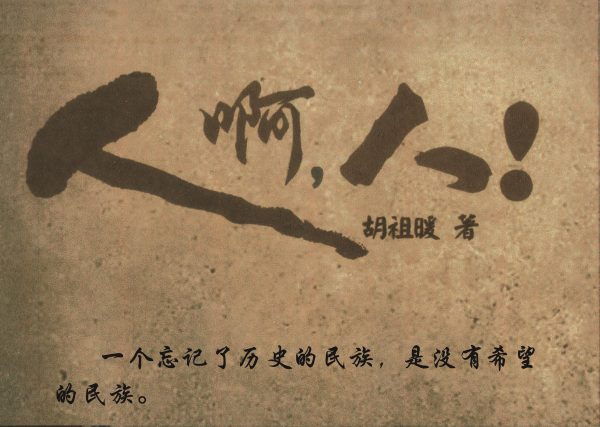 人啊，人！
胡祖暖 著
一个忘记了历史的民族，是没有希望
的民族。